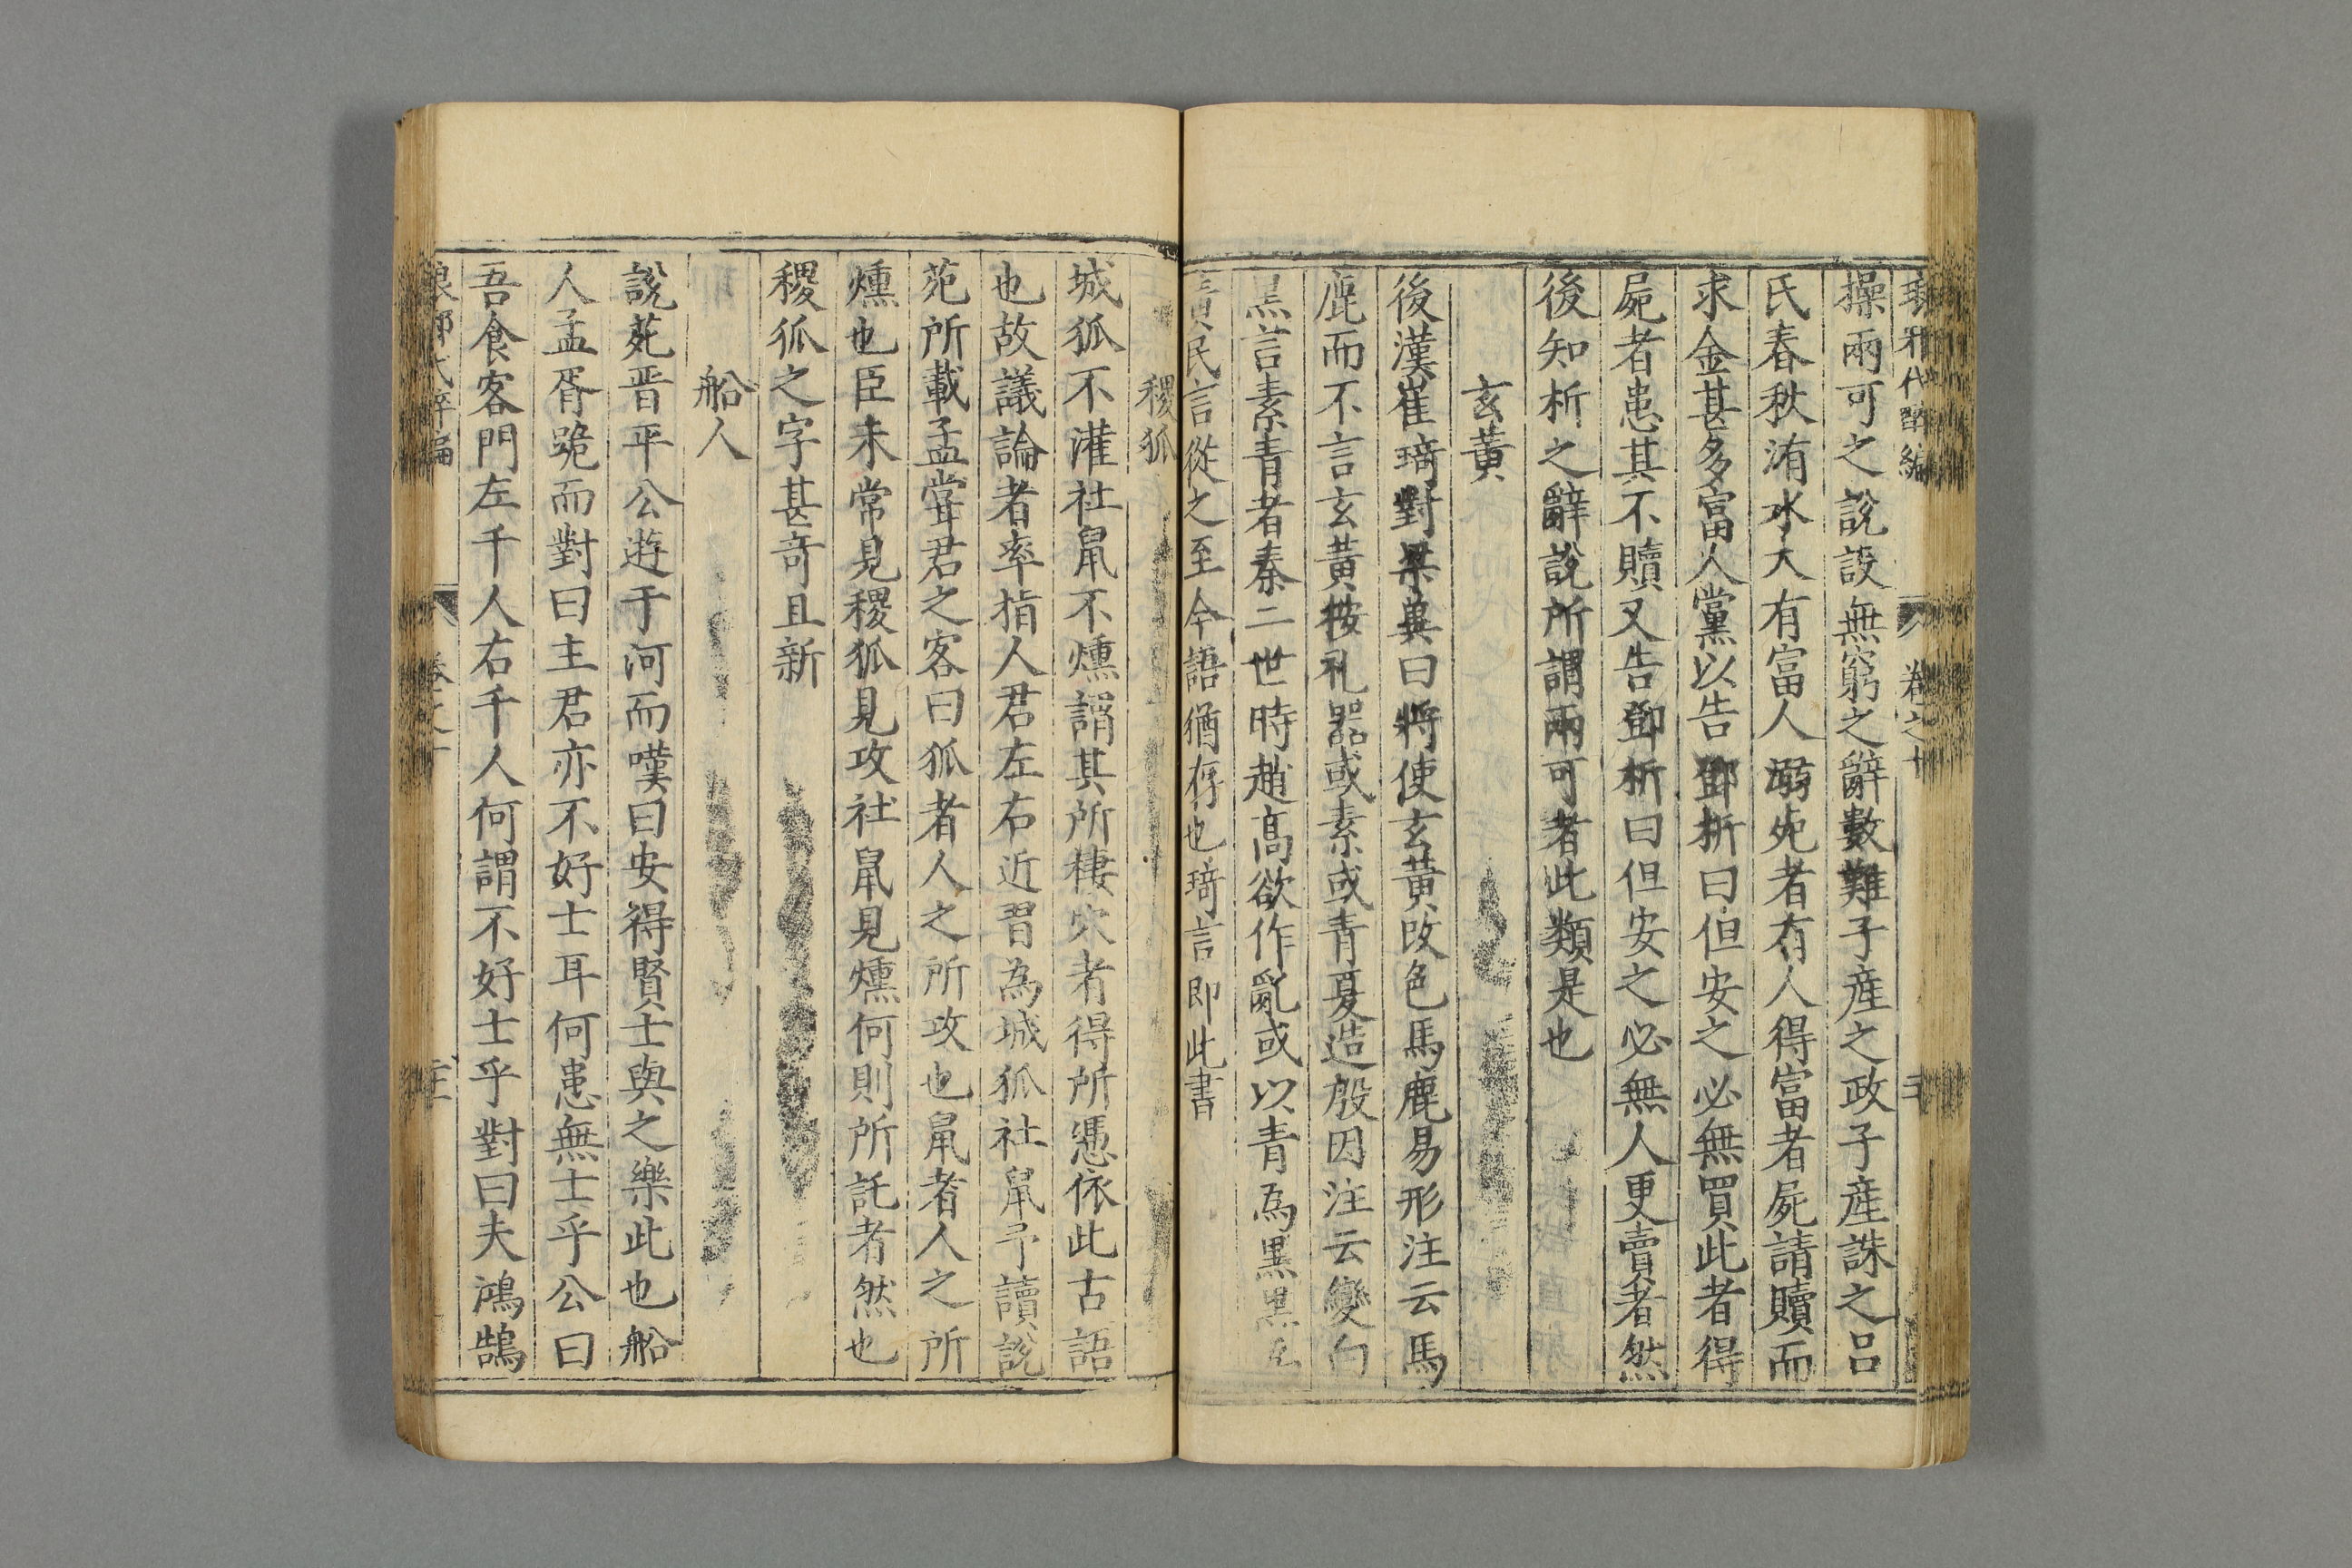 琅邪代醉編 卷之十 二十
操兩可之說設無窮之辭數難子產之政子產誅之呂
氏春秋洧水大有富人溺死者有人得富者屍請贖而
求金甚多富人黨以告鄧析曰但安之必無買此者得
屍者患其不贖又告鄧析曰但安之必無人更賣者然
後知析之辭說所謂兩可者此類是也
玄黃
後漢崔琦對梁冀曰將使玄黃改色馬鹿易形注云馬
鹿而不言玄黃按礼器或素或青夏造殷因注云變白
黑言素青者秦二世時趙高欲作亂或以青為黑黑為
黃民言從之至今語猶存也琦言即此書
稷狐
城狐不灌社鼠不燻謂其所棲穴者得所憑依此古語
也故議論者率指人君左右近習為城狐社鼠予讀說
苑所載孟甞君之客曰狐者人之所攻也鼠者人之所
燻也臣未常見稷狐見攻社鼠見燻何則所託者然也
稷狐之字甚奇且新
船人
說苑晋平公遊于河而嘆曰安得賢士與之樂此也船
人孟胥跪而對曰主君亦不好士耳何患無士乎公曰
吾食客門左千人右千人何謂不好士乎對曰夫鴻鵠
卷之十